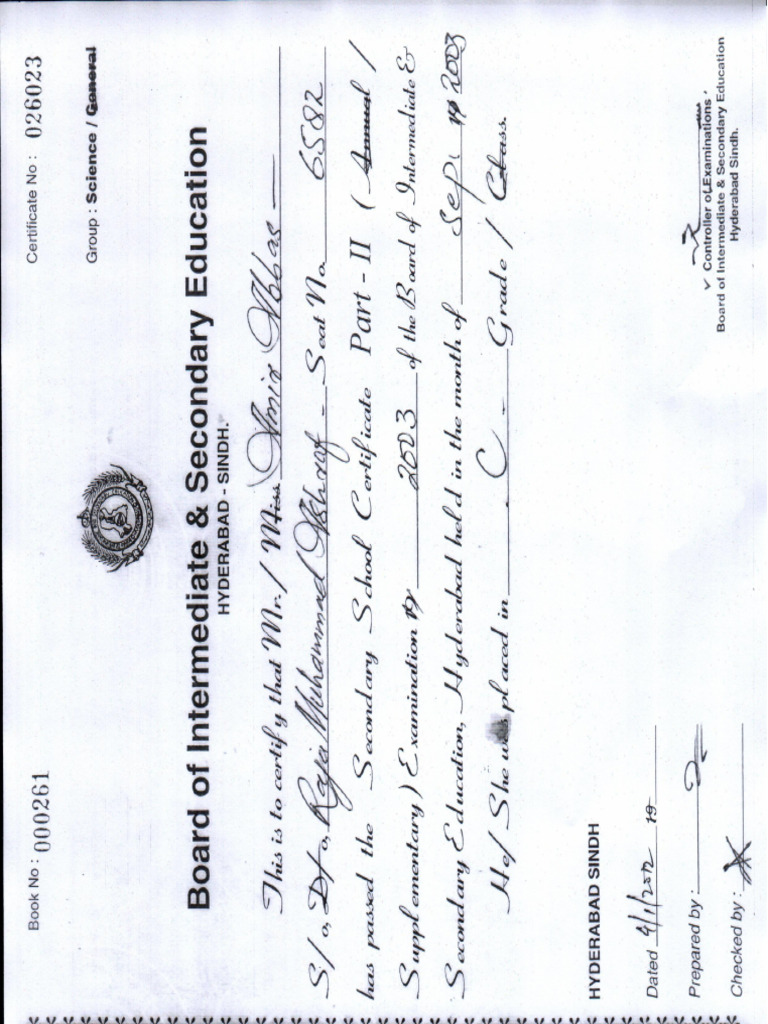 Book No : 000261
Certificate No : 026023
Group : Science / General
Board of Intermediate & Secondary Education
HYDERABAD - SINDH.
This is to certify that Mr./ Miss Amir Abbas
S/o, D/o, Raja Muhammad Ashraf - Seat No. 6582
has passed the Secondary School Certificate Part - II ( Annual /
Supplementary ) Examination 19 2003 of the Board of Intermediate &
Secondary Education, Hyderabad held in the month of Sep. 19 2003
He/ She was placed in C - Grade / Class.
HYDERABAD SINDH
Dated 4/1/2012 19
Prepared by :
Checked by :
Controller of Examinations
Board of Intermediate & Secondary Education
Hyderabad Sindh.